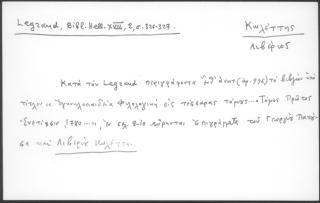 Legrand, Bibl. Hell. XVIII, 2, σ. 326-327.
Κωλέττης
Λιβέριος
Κατὰ τὸν Legrand περιγράφοντα
τίτλον "Ἐγκυκλοπαιδεία Φιλολογικὴ εἰς τέσσαρας τόμους... Τόμος Πρῶτος
Ἐνετίῃσιν, 1780..., ἐν σελ. εὕρηνται ἐπιγράμματα τοῦ Γεωργίου
σα καὶ Λιβερίου Κωλέττη.